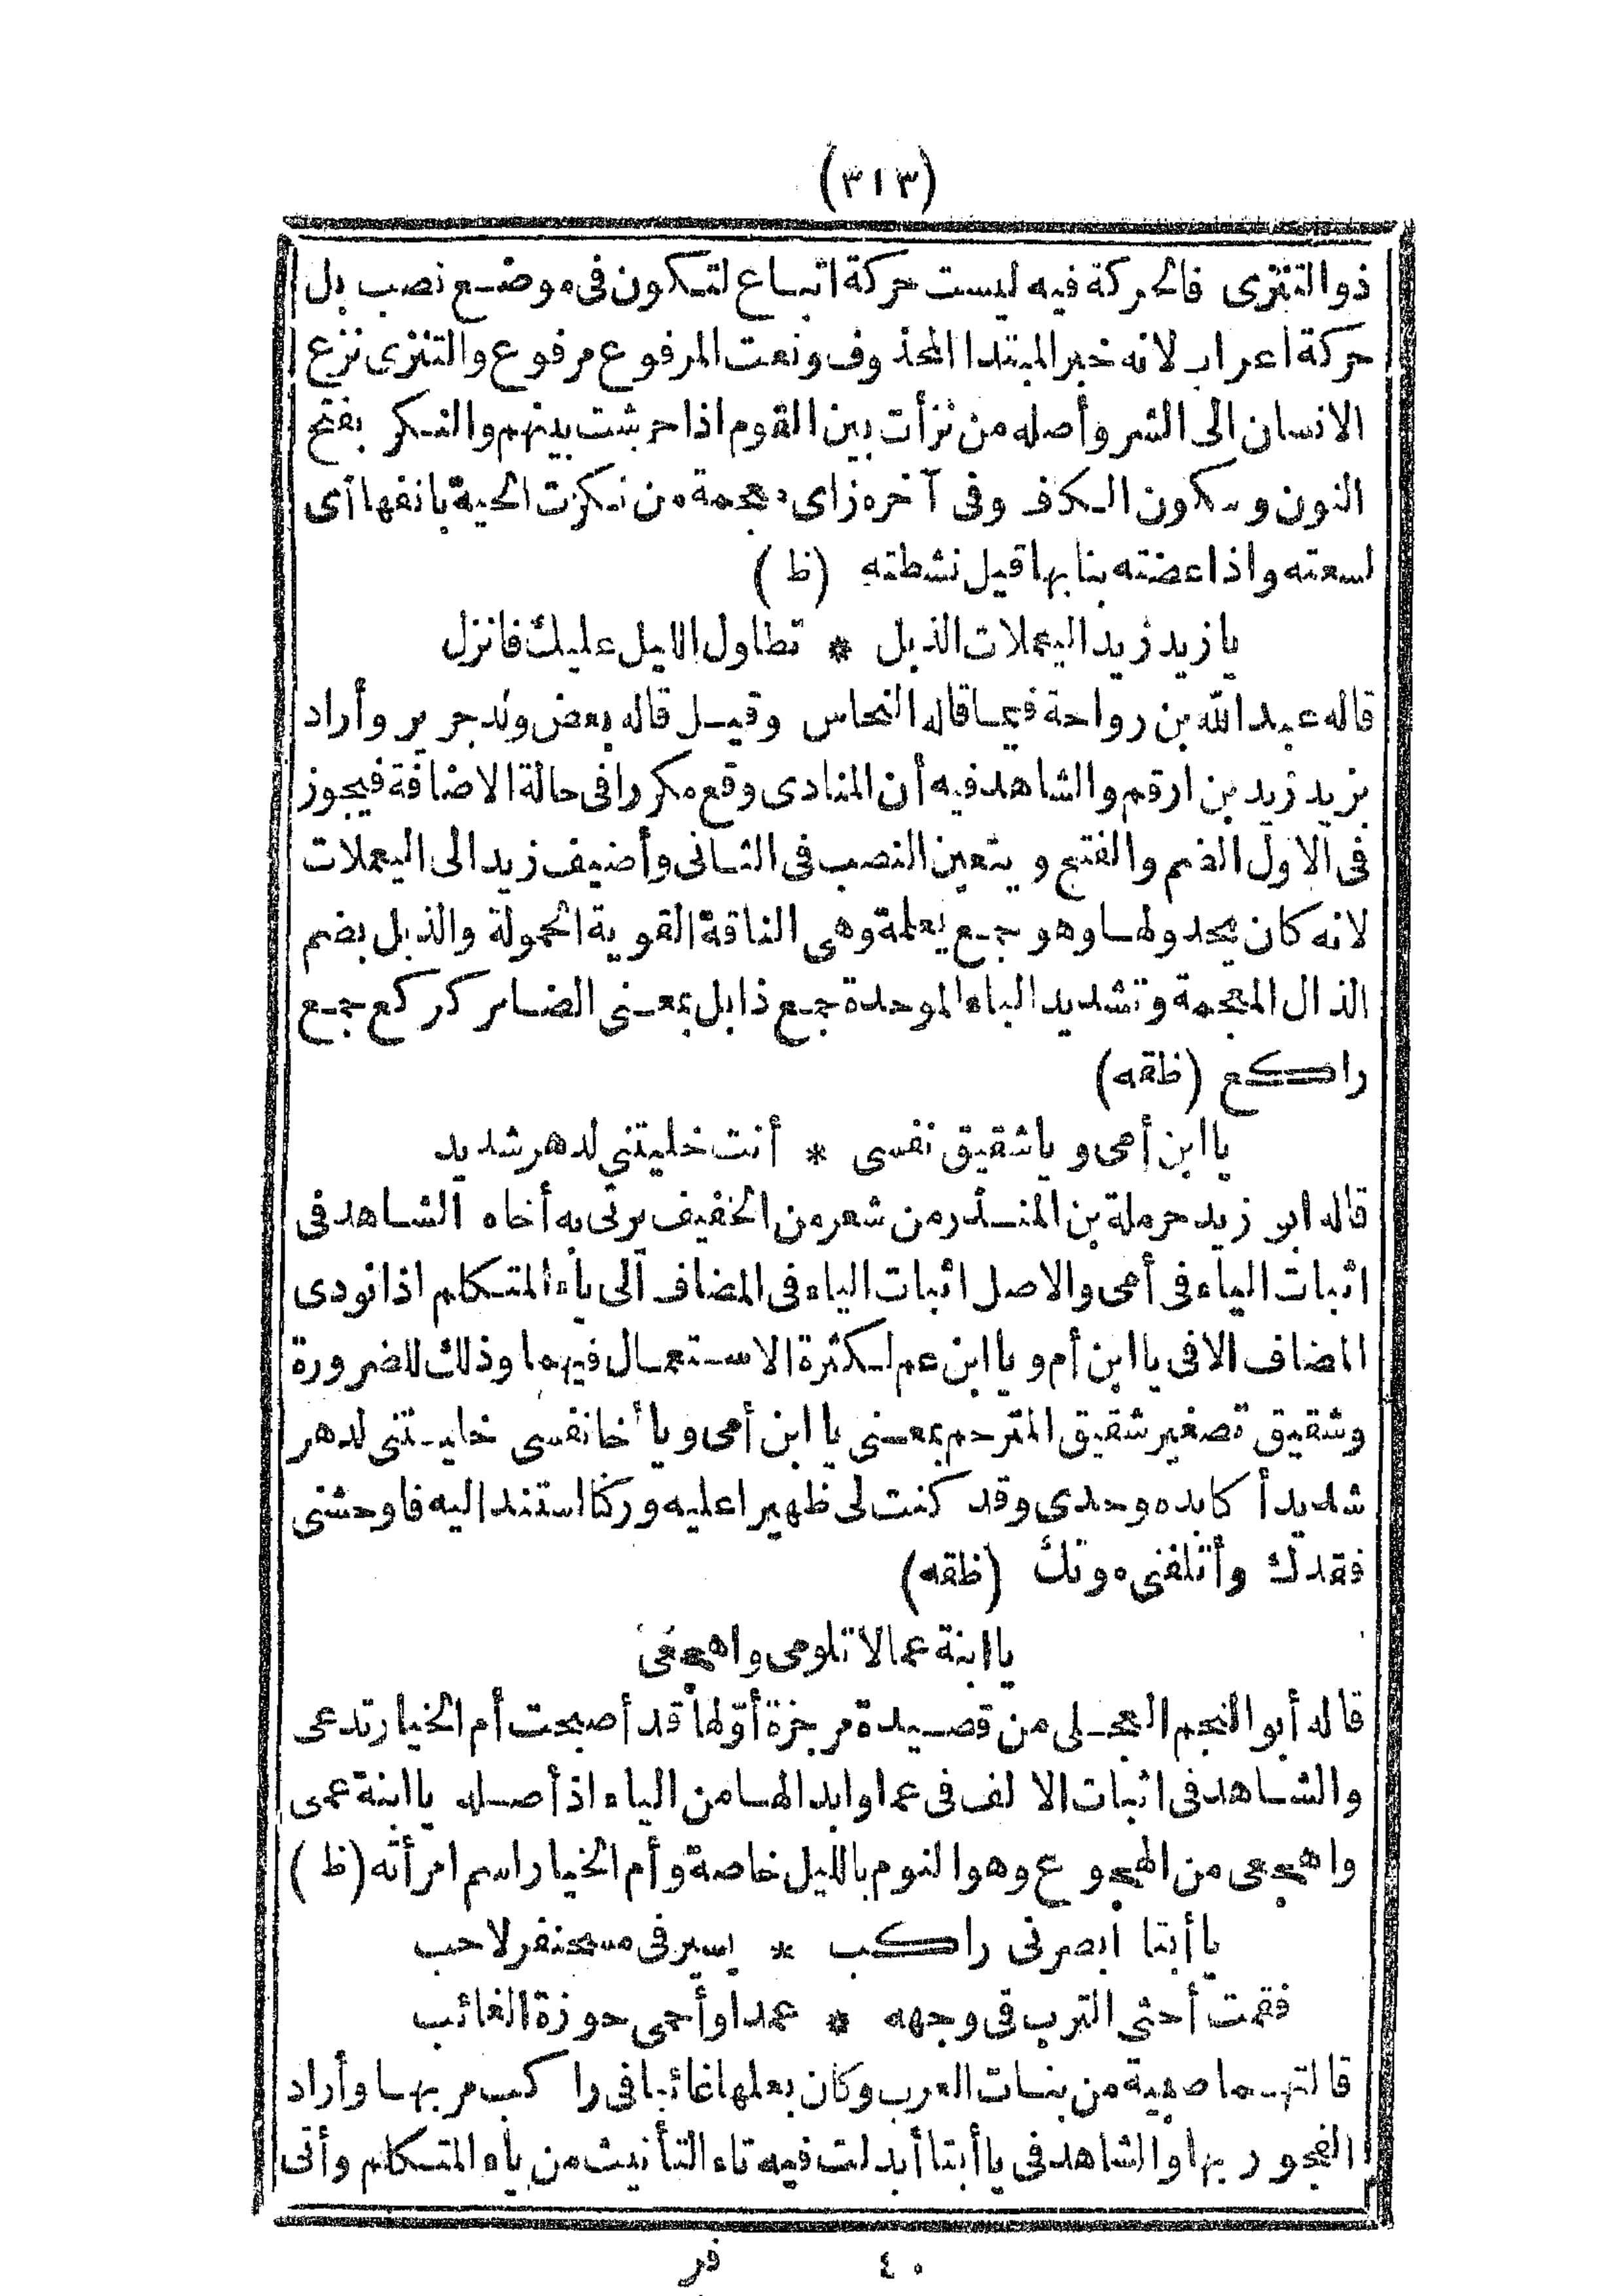 (٣١٣)
ذو التنزى فالحركة فيه ليست حركة اتباع لتكون فى موضع نصب بل
حركة اعراب لانه خبر المبتدا المحذوف ونعت المرفوع مرفوع والتنزى نزع
الانسان الى الشر وأصله من نزأت بين القوم اذا حرشت بينهم والنكز بفتح
النون وسكون الكاف وفى آخره زاى معجمة من نكزت الحية بانفها أى
لسعته واذا عضته بنابها قيل نشطته (ظ)
يا زيد زيد اليعملات الذبل * تطاول الليل عليك فانزل
قاله عبد الله بن رواحة فيما قاله النحاس وقيل قاله بعض ولد جرير وأراد
بزيد زيد بن ارقم والشاهد فيه أن المنادى وقع مكررا فى حالة الاضافة فيجوز
فى الاول الضم والفتح ويتعين النصب فى الثانى وأضيف زيد الى اليعملات
لانه كان يحدو لها وهو جمع يعملة وهى الناقة القوية الحمولة والذبل بضم
الذال المعجمة وتشديد الباء الموحدة جمع ذابل بمعنى الضامر كركع جمع
راكع (ظقه)
يا ابن أمى ويا شقيق نفسى * أنت خليتنى لدهر شديد
قاله ابو زيد حرملة بن المنذر من شعر من الخفيف يرثى به أخاه الشاهد فى
اثبات الياء فى أمى والاصل اثبات الياء فى المضاف الى ياء المتكلم اذا نودى
المضاف الا فى يا ابن أم ويا ابن عم لكثرة الاستعمال فيهما وذلك للضرورة
وشقيق تصغير شقيق المترحم بمعنى يا ابن أمى ويا أخا نفسى خليتنى لدهر
شديد أكابده وحدى وقد كنت لى ظهيرا عليه وركنا استند اليه فاوحشنى
فقدك وأتلفنى موتك (ظقه)
يا ابنة عما لا تلومى واهجعى
قاله أبو النجم العجلى من قصيدة مرجزة أولها قد أصبحت أم الخيار تدعى
والشاهد فى اثبات الالف فى عما وابدالها من الياء اذ أصله يا ابنة عمى
واهجعى من الهجوع وهو النوم بالليل خاصة وأم الخيار اسم امرأته (ظ)
يا أبتا أبصرنى راكب * يسير فى مسحنفر لاحب
فقمت أحثى الترب فى وجهه * عمدا وأحمى حوزة الغائب
قالتهما صبية من بنات العرب وكان بعلها غائبا فى راكب مر بها وأراد
الفجور بها والشاهد فى يا أبتا أبدلت فيه تاء التأنيث من ياء المتكلم وأتى
٤٠ فر